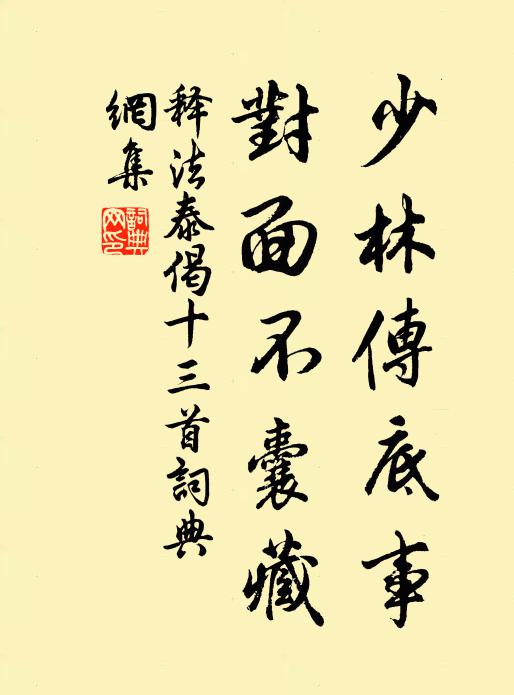 少林傳底事
對面不囊藏
释法泰偈十三首詞典
網集
詞典網印